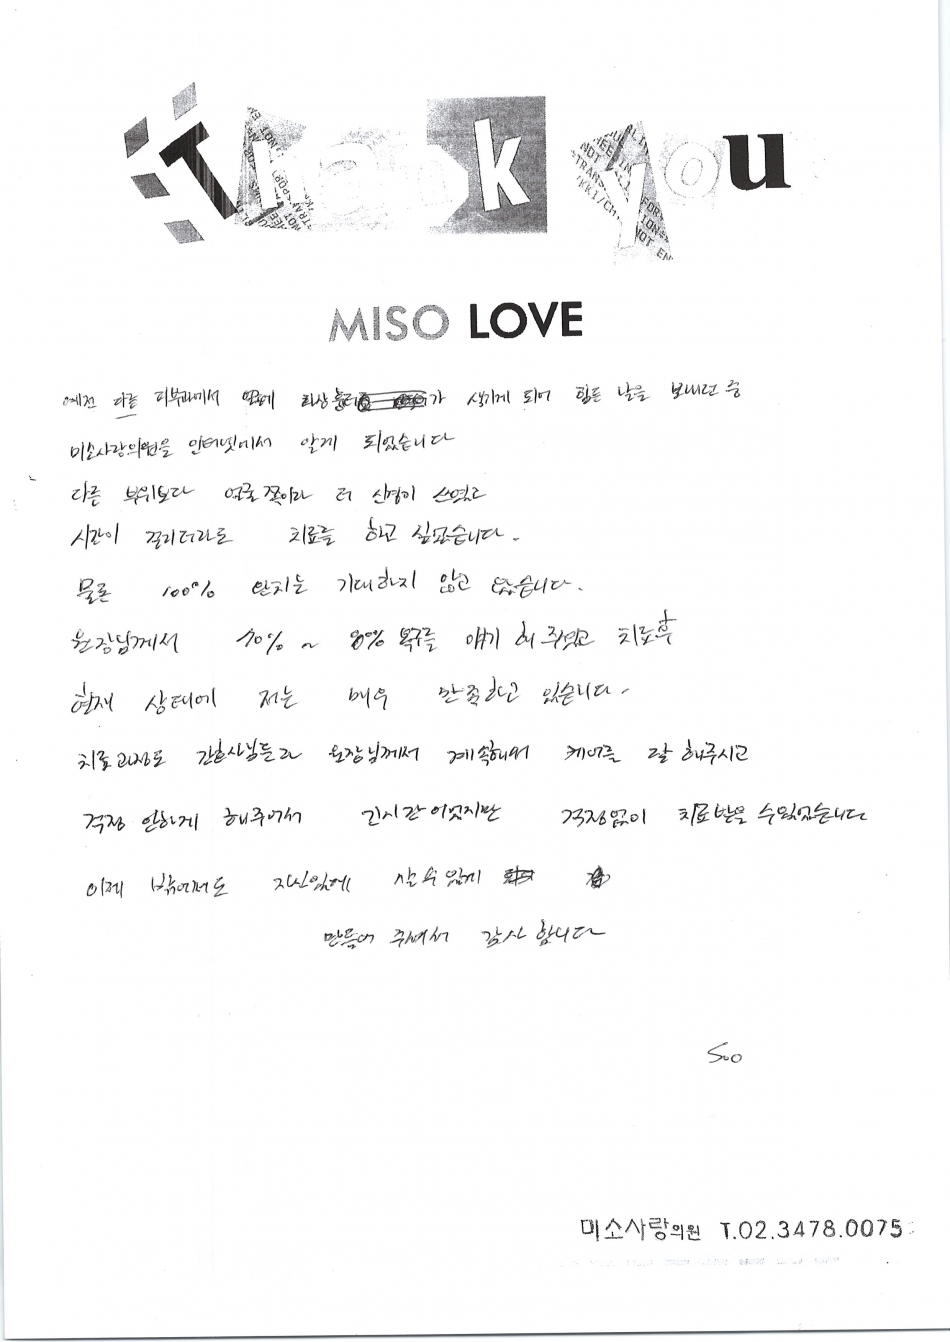 Thank you
MISO LOVE
예전 다른 피부과에서 얼굴에 화상흉터가 생기게 되어 힘든 날을 보내던 중
미소사랑의원을 인터넷에서 알게 되었습니다
다른 부위보다 얼굴쪽이라 더 신경이 쓰였고
시간이 걸리더라도 치료를 하고 싶었습니다.
물론 100% 완치는 기대하지 않고 있습니다.
원장님께서 70% ~ 80% 복구를 얘기 해 주셨고 치료후
현재 상태에 저는 매우 만족하고 있습니다.
치료과정도 간호사님들과 원장님께서 계속해서 케어를 잘 해주시고
걱정 안하게 해주어서 긴시간이었지만 걱정없이 치료받을 수있었습니다
이제 밖에서도 자신있게 살 수 있게
만들어 주셔서 감사 합니다
Soo
미소사랑의원 T.02.3478.0075